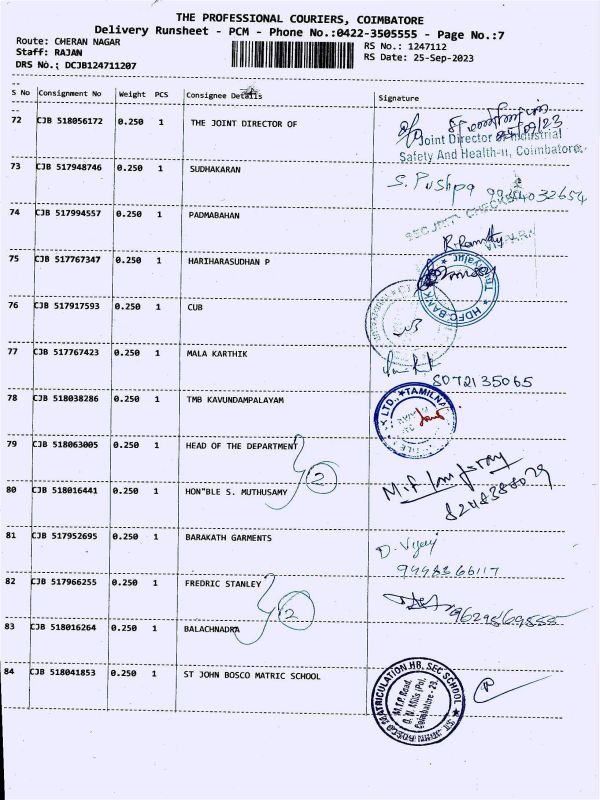 THE PROFESSIONAL COURIERS, COIMBATORE
Delivery Runsheet - PCM - Phone No.:0422-3505555 - Page No.:7
Route: CHERAN NAGAR
RS No.: 1247112
Staff: RAJAN
RS Date: 25-Sep-2023
DRS No.: DCJB124711207
S No Consignment No Weight PCS Consignee Details Signature
72 CJB 518056172 0.250 1 THE JOINT DIRECTOR OF
25/09/23
Joint Director of Industrial
Safety And Health-II, Coimbatore.
73 CJB 517948746 0.250 1 SUDHAKARAN
S. Pushpa
74 CJB 517994557 0.250 1 PADMABAHAN
SECURITY CHECKED
75 CJB 517767347 0.250 1 HARIHARASUDHAN P
HDFC BANK
76 CJB 517917593 0.250 1 CUB
77 CJB 517767423 0.250 1 MALA KARTHIK
8072135065
78 CJB 518038286 0.250 1 TMB KAVUNDAMPALAYAM
LTD. * TAMILNA
79 CJB 518063005 0.250 1 HEAD OF THE DEPARTMENT
2
80 CJB 518016441 0.250 1 HON"BLE S. MUTHUSAMY
81 CJB 517952695 0.250 1 BARAKATH GARMENTS
D. Vijay
82 CJB 517966255 0.250 1 FREDRIC STANLEY
2
83 CJB 518016264 0.250 1 BALACHNADRA
84 CJB 518041853 0.250 1 ST JOHN BOSCO MATRIC SCHOOL
MATRICULATION HR. SEC SCHOOL
M.T.P. Road,
G. N. Mills (Po),
Coimbatore - 29.